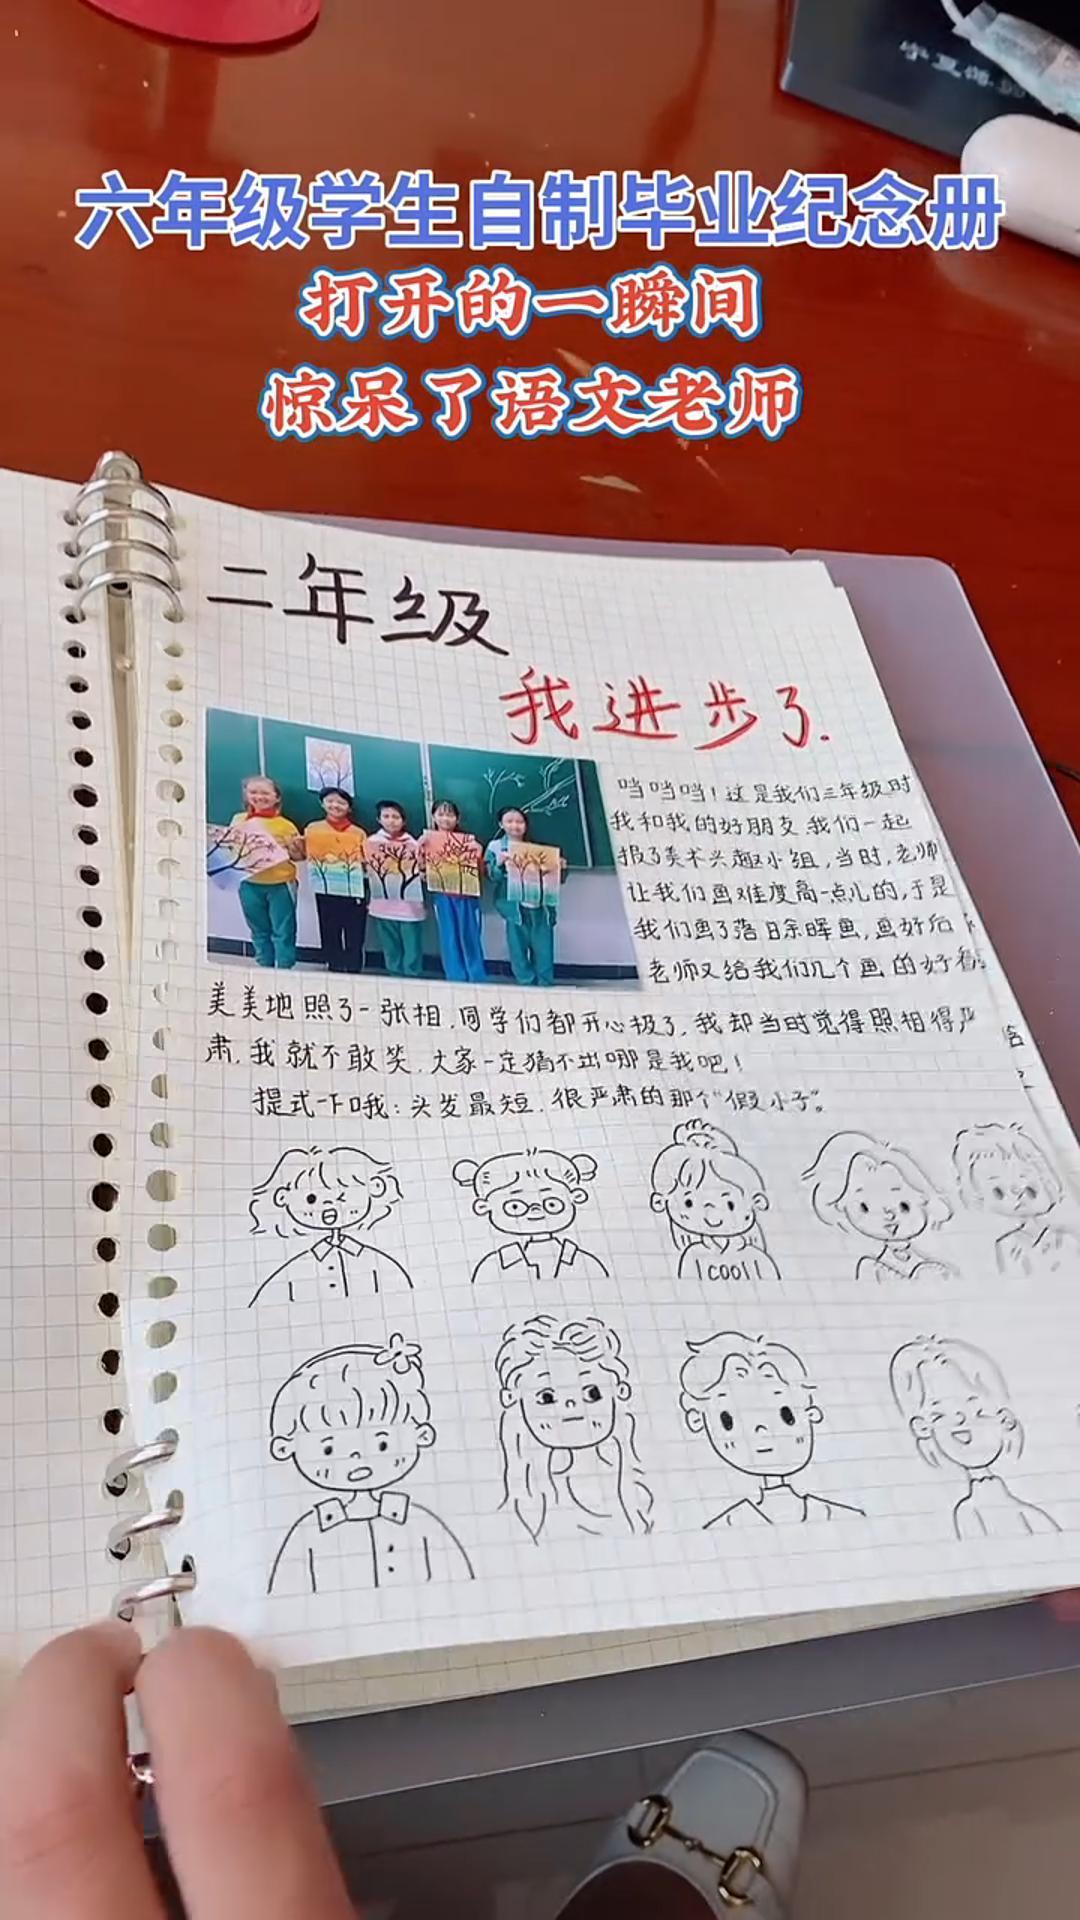 六年级学生自制毕业纪念册
打开的一瞬间
惊呆了语文老师
二年级
我进步了.
当当当！这是我们三年级时
我和我的好朋友,我们一起
报了美术兴趣小组,当时,老师
让我们画难度高一点儿的,于是
我们画了落日余晖画,画好后
老师又给我们几个画的好看
美美地照了一张相,同学们都开心极了,我却当时觉得照相得严
肃,我就不敢笑.大家一定猜不出哪是我吧！
提式一下哦:头发最短.很严肃的那个“假小子”。
COOl